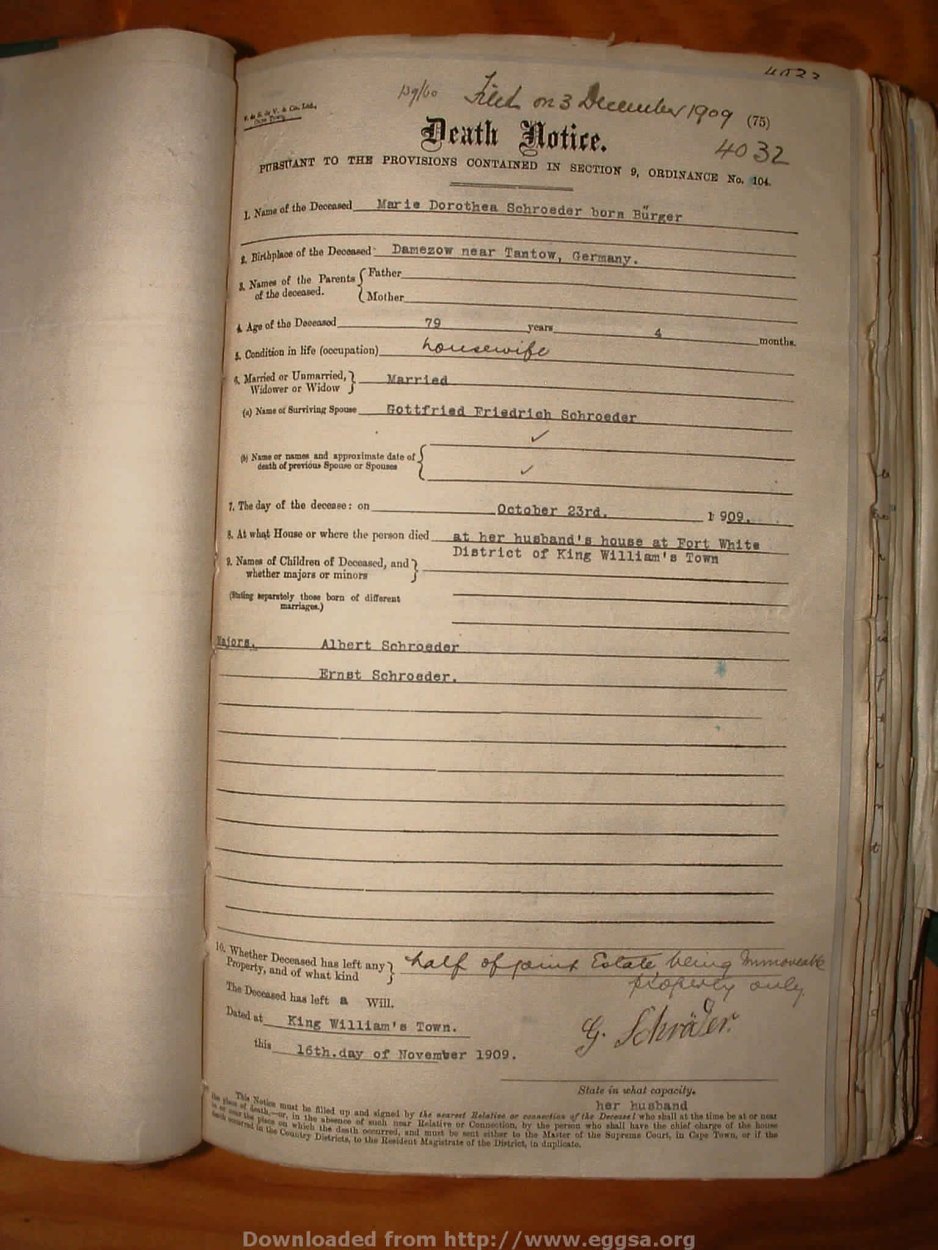 Filed on 3 December 1909 (75)
4032
Death Notice.
PURSUANT TO THE PROVISIONS CONTAINED IN SECTION 9, ORDINANCE No. 104.
1. Name of the Deceased Marie Dorothea Schroeder born Bürger
2. Birthplace of the Deceased Damezow near Tantow, Germany.
3. Names of the Parents of the deceased. { Father
Mother
4. Age of the Deceased 79 years 4 months.
5. Condition in life (occupation) housewife
6. Married or Unmarried, Widower or Widow } Married
(a) Name of Surviving Spouse Gottfried Friedrich Schroeder
✓
(b) Name or names and approximate date of death of previous Spouse or Spouses { ✓
7. The day of the decease: on October 23rd. 1909.
8. At what House or where the person died at her husband's house at Fort White
District of King William's Town
9. Names of Children of Deceased, and whether majors or minors }
(Stating separately those born of different marriages.)
Majors. Albert Schroeder
Ernst Schroeder.
10. Whether Deceased has left any Property, and of what kind } half of joint Estate being Immoveable
property only
The Deceased has left a Will.
Dated at King William's Town.
G. Schräder.
this 16th.day of November 1909.
State in what capacity.
her husband
This Notice must be filled up and signed by the nearest Relative or connection of the Deceased who shall at the time be at or near
the place of death,—or, in the absence of such near Relative or Connection, by the person who shall have the chief charge of the house
in or near the place on which the death occurred, and must be sent either to the Master of the Supreme Court, in Cape Town, or if the
death occurred in the Country Districts, to the Resident Magistrate of the District, in duplicate.
Downloaded from http://www.eggsa.org